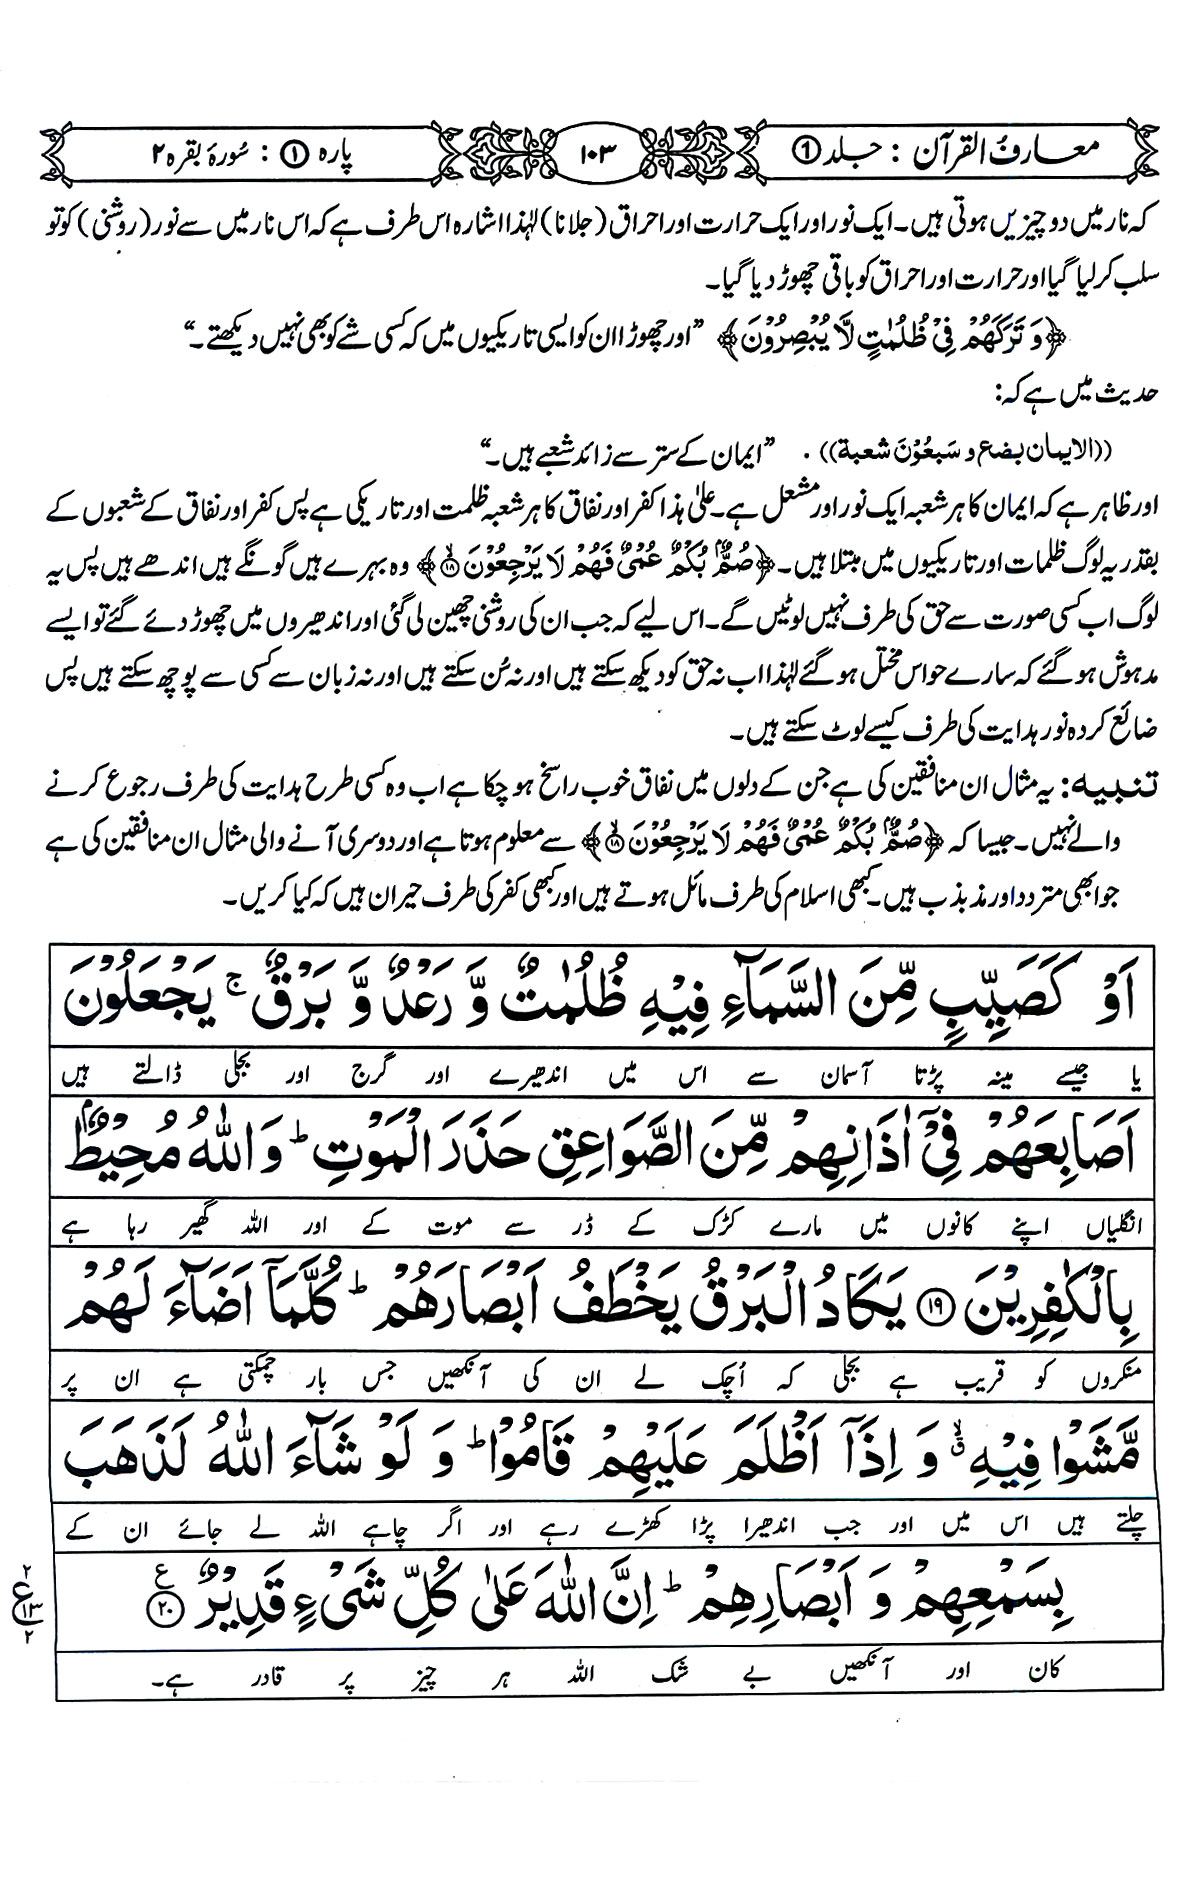 معارف القرآن : جلد ①
۱۰۳
پارہ ① : سُورۂ بقرہ ۲
کہ نار میں دو چیزیں ہوتی ہیں۔ ایک نور اور ایک حرارت اور احراق (جلانا) لہٰذا اشارہ اس طرف ہے کہ اس نار میں سے نور (روشنی) کو تو
سلب کر لیا گیا اور حرارت اور احراق کو باقی چھوڑ دیا گیا۔
﴿وَ تَرَكَهُمْ فِيْ ظُلُمٰتٍ لَّا يُبْصِرُوْنَ﴾ ”اور چھوڑا ان کو ایسی تاریکیوں میں کہ کسی شے کو بھی نہیں دیکھتے۔“
حدیث میں ہے کہ:
((الایمان بضع و سَبعُوْنَ شعبة)). ”ایمان کے ستر سے زائد شعبے ہیں۔“
اور ظاہر ہے کہ ایمان کا ہر شعبہ ایک نور اور مشعل ہے۔ علیٰ ہذا کفر اور نفاق کا ہر شعبہ ظلمت اور تاریکی ہے پس کفر اور نفاق کے شعبوں کے
بقدر یہ لوگ ظلمات اور تاریکیوں میں مبتلا ہیں۔ ﴿صُمٌّۢ بُكْمٌ عُمْيٌ فَهُمْ لَا يَرْجِعُوْنَ ۙ۱۸﴾ وہ بہرے ہیں گونگے ہیں اندھے ہیں پس یہ
لوگ اب کسی صورت سے حق کی طرف نہیں لوٹیں گے۔ اس لیے کہ جب ان کی روشنی چھین لی گئی اور اندھیروں میں چھوڑ دئے گئے تو ایسے
مدہوش ہو گئے کہ سارے حواس مختل ہو گئے لہٰذا اب نہ حق کو دیکھ سکتے ہیں اور نہ سُن سکتے ہیں اور نہ زبان سے کسی سے پوچھ سکتے ہیں پس
ضائع کردہ نور ہدایت کی طرف کیسے لوٹ سکتے ہیں۔
تنبیہ: یہ مثال ان منافقین کی ہے جن کے دلوں میں نفاق خوب راسخ ہو چکا ہے اب وہ کسی طرح ہدایت کی طرف رجوع کرنے
والے نہیں۔ جیسا کہ ﴿صُمٌّۢ بُكْمٌ عُمْيٌ فَهُمْ لَا يَرْجِعُوْنَ ۙ۱۸﴾ سے معلوم ہوتا ہے اور دوسری آنے والی مثال ان منافقین کی ہے
جو ابھی متردد اور مذبذب ہیں۔ کبھی اسلام کی طرف مائل ہوتے ہیں اور کبھی کفر کی طرف حیران ہیں کہ کیا کریں۔
اَوْ كَصَيِّبٍ مِّنَ السَّمَآءِ فِيْهِ ظُلُمٰتٌ وَّ رَعْدٌ وَّ بَرْقٌ ۚ يَجْعَلُوْنَ
یا جیسے مینہ پڑتا آسمان سے اس میں اندھیرے اور گرج اور بجلی ڈالتے ہیں
اَصَابِعَهُمْ فِيْۤ اٰذَانِهِمْ مِّنَ الصَّوَاعِقِ حَذَرَ الْمَوْتِ ؕ وَ اللّٰهُ مُحِيْطٌۢ
انگلیاں اپنے کانوں میں مارے کڑک کے ڈر سے موت کے اور اللہ گھیر رہا ہے
بِالْكٰفِرِيْنَ ۱۹ يَكَادُ الْبَرْقُ يَخْطَفُ اَبْصَارَهُمْ ؕ كُلَّمَاۤ اَضَآءَ لَهُمْ
منکروں کو قریب ہے بجلی کہ اُچک لے ان کی آنکھیں جس بار چمکتی ہے ان پر
مَّشَوْا فِيْهِ ۙۗ وَ اِذَاۤ اَظْلَمَ عَلَيْهِمْ قَامُوْا ؕ وَ لَوْ شَآءَ اللّٰهُ لَذَهَبَ
چلتے ہیں اس میں اور جب اندھیرا پڑا کھڑے رہے اور اگر چاہے اللہ لے جائے ان کے
بِسَمْعِهِمْ وَ اَبْصَارِهِمْ ؕ اِنَّ اللّٰهَ عَلٰى كُلِّ شَيْءٍ قَدِيْرٌ ۲۰ ع
کان اور آنکھیں بے شک اللہ ہر چیز پر قادر ہے۔
۲
ع
۱۳
۲